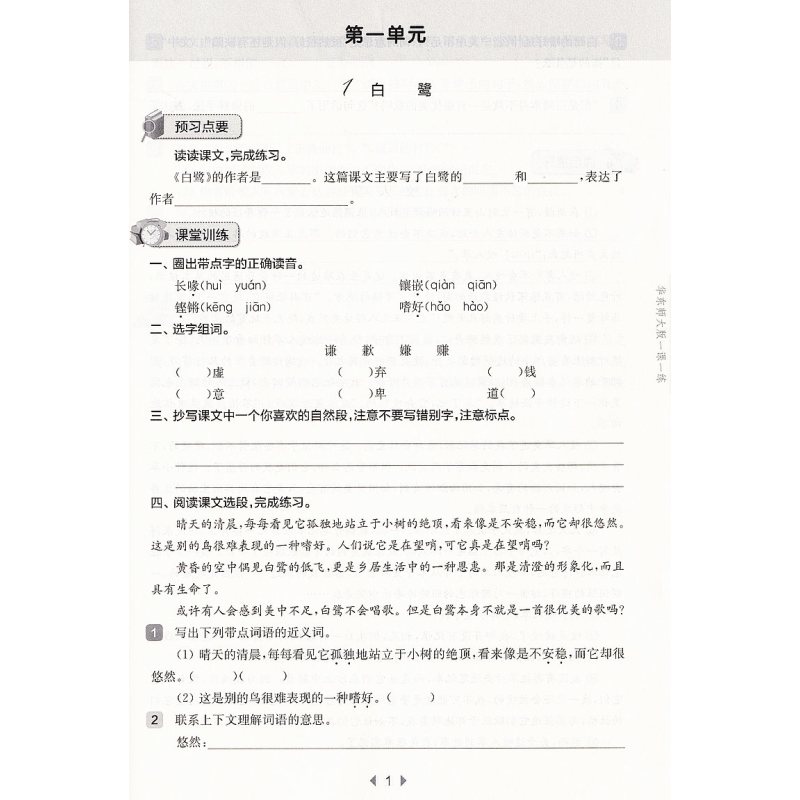 第一单元
1 白 鹭
预习点要
读读课文,完成练习。
《白鹭》的作者是______。这篇课文主要写了白鹭的______和______,表达了
作者____________________。
课堂训练
一、圈出带点字的正确读音。
长喙(huì yuán) 镶嵌(qiàn qiān)
铿锵(kēng jiān) 嗜好(hǎo hào)
二、选字组词。
谦 歉 嫌 赚
( )虚 ( )弃 ( )钱
( )意 ( )卑 道( )
三、抄写课文中一个你喜欢的自然段,注意不要写错别字,注意标点。
四、阅读课文选段,完成练习。
晴天的清晨,每每看见它孤独地站立于小树的绝顶,看来像是不安稳,而它却很悠然。
这是别的鸟很难表现的一种嗜好。人们说它是在望哨,可它真是在望哨吗?
黄昏的空中偶见白鹭的低飞,更是乡居生活中的一种恩惠。那是清澄的形象化,而且
具有生命了。
或许有人会感到美中不足,白鹭不会唱歌。但是白鹭本身不就是一首很优美的歌吗?
1 写出下列带点词语的近义词。
(1) 晴天的清晨,每每看见它孤独地站立于小树的绝顶,看来像是不安稳,而它却很
悠然。( )( )
(2) 这是别的鸟很难表现的一种嗜好。( )
2 联系上下文理解词语的意思。
悠然:
1
华东师大版一课一练